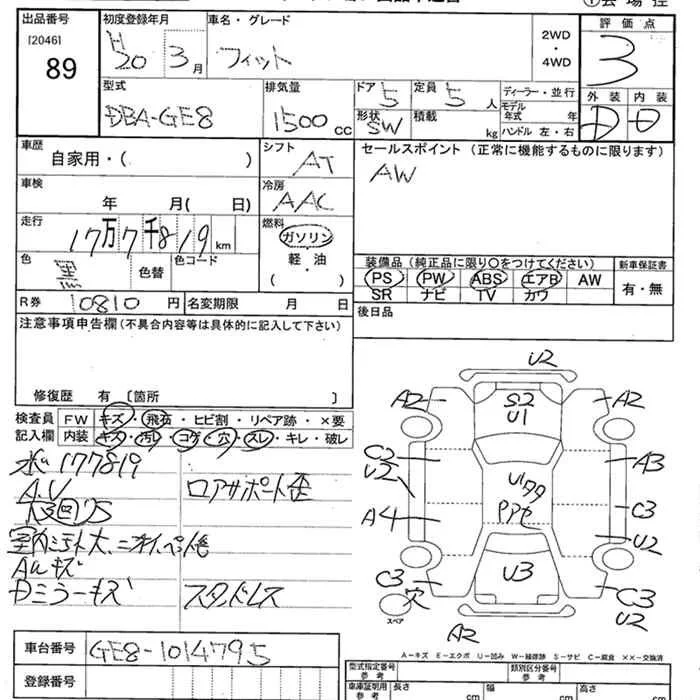 出品番号
[2046]
89
初度登録年月
H
20 3月
車名・グレード
フィット
2WD
・
4WD
評価点
3
外装 内装
D D
型式
DBA-GE8
排気量
1500 cc
ドア 5
形状 SW
定員 5 人
積載 kg
ディーラー・並行
モデル年式 年
ハンドル 左・右
車歴
自家用・( )
シフト
AT
セールスポイント (正常に機能するものに限ります)
AW
車検
年 月( 日)
冷房
AAC
走行
17万7千819km
燃料
ガソリン
軽・油
( )
色
黒
色替
色コード
装備品(純正品に限り○をつけてください)
PS PW ABS エアB AW
SR ナビ TV カワ
新車保証書
有・無
R券 10810 円
名変期限 月 日
後日品
注意事項申告欄(不具合内容等は具体的に記入して下さい)
修復歴 有 [箇所 ]
検査員
記入欄
FW キズ・飛石・ヒビ割・リペア跡・×要
内装 キズ・汚レ・コゲ・穴・スレ・キレ・破レ
177819
A.U
ロアサポート歪
AWキズ
Dミラーキズ
スタッドレス
U2
A2
S2
U1
A2
C2
U2
A3
U1
C3
A4
U2
U3
C3
穴
スペア
C3
U2
A2
A-キズ E-エクボ U-凹み W-補修跡 S-サビ C-腐食 ××-交換済
車台番号
GE8-1014795
登録番号
型式指定番号
参考
類別区分番号
参考
車庫証明用
参考
長さ cm
幅 cm
高さ cm